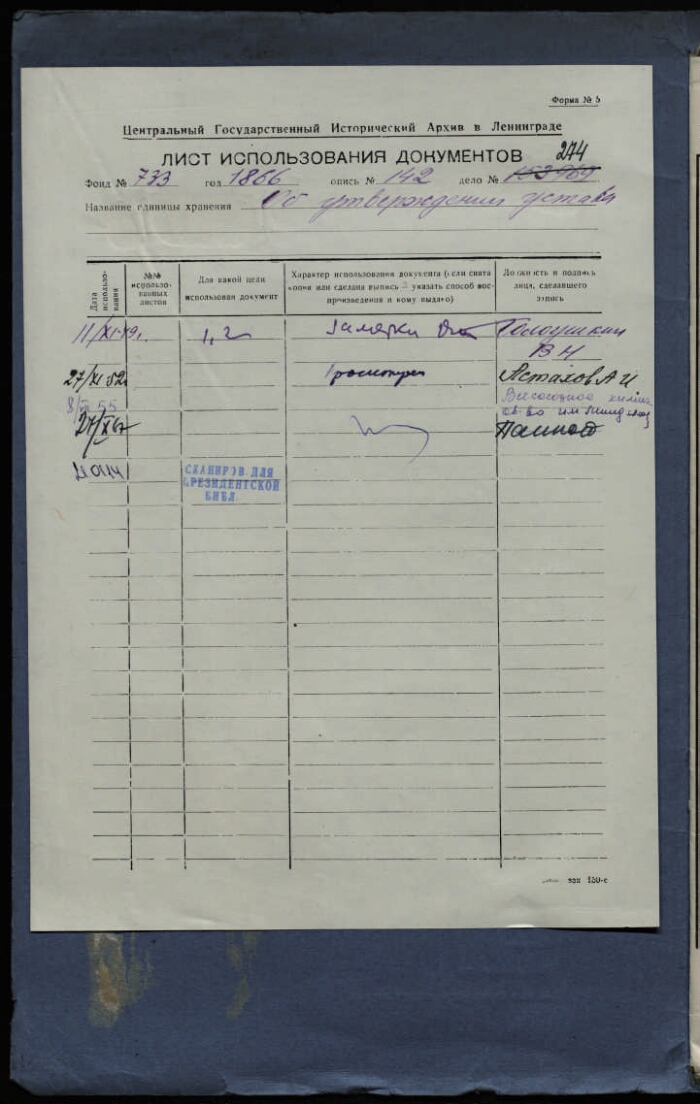 Форма № 5
Центральный Государственный Исторический Архив в Ленинграде
ЛИСТ ИСПОЛЬЗОВАНИЯ ДОКУМЕНТОВ 274
Фонд № 733 год 1866 опись № 142 дело №
Название единицы хранения Об утверждении устава
Дата использования
№№ использованных листов
Для какой цели использован документ
Характер использования документа (если снята копия или сделана выпись указать способ воспроизведения и кому выдано)
Должность и подпись лица, сделавшего запись
11/XI-49г. 1, 2 Заметки
27/XI 52 Просмотрен Астахов А И
8/ 55 Всесоюзное
27/X
СКАНИРОВ. ДЛЯ
ПРЕЗИДЕНТСКОЙ
БИБЛ.
зак 150-с